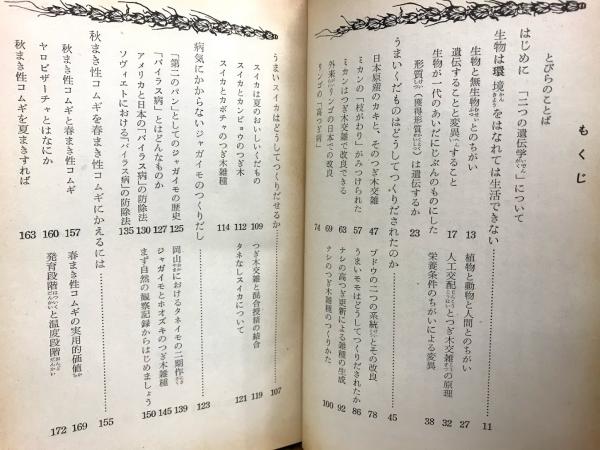 もくじ
とびらのことば
はじめに 「二つの遺伝学」について
生物は環境をはなれては生活できない 11
生物と無生物とのちがい 13
遺伝することと変異すること 17
生物が一代のあいだにじぶんのものにした
形質(獲得形質)は遺伝するか 23
植物と動物と人間とのちがい 27
人工交配とつぎ木交雑の原理 32
栄養条件のちがいによる変異 38
うまいくだものはどうしてつくりだされたのか 45
日本原産のカキと、そのつぎ木交雑 47
ミカンの「枝がわり」がみつけられた 57
ミカンはつぎ木交雑で改良できる 63
外来リンゴの日本での改良 69
リンゴの「高つぎ病」 74
ブドウの二つの系統とその改良 78
うまいモモはどうしてつくりだされたか 86
ナシの高つぎ更新による雑種の生成 92
ナシのつぎ木雑種のつくりかた 100
うまいスイカはどうしてつくりだせるか 107
スイカは夏のおいしいくだもの 109
スイカとカンピョウのつぎ木 112
スイカとカボチャのつぎ木雑種 114
つぎ木交雑と混合授精の結合 119
タネなしスイカについて 121
病気にかからないジャガイモのつくりだし 123
「第二のパン」としてのジャガイモの歴史 125
「バイラス病」とはどんなものか 127
アメリカと日本の「バイラス病」の防除法 130
ソヴィエトにおける「バイラス病」の防除法 135
岡山におけるタネイモの二期作 139
ジャガイモとホオズキのつぎ木雑種 145
まず自然の観察記録からはじめましょう 150
秋まき性コムギを春まき性コムギにかえるには 155
秋まき性コムギと春まき性コムギ 157
ヤロビザーチャとはなにか 160
秋まき性コムギを夏まきすれば 163
春まき性コムギの実用的価値 169
発育段階と温度段階 172